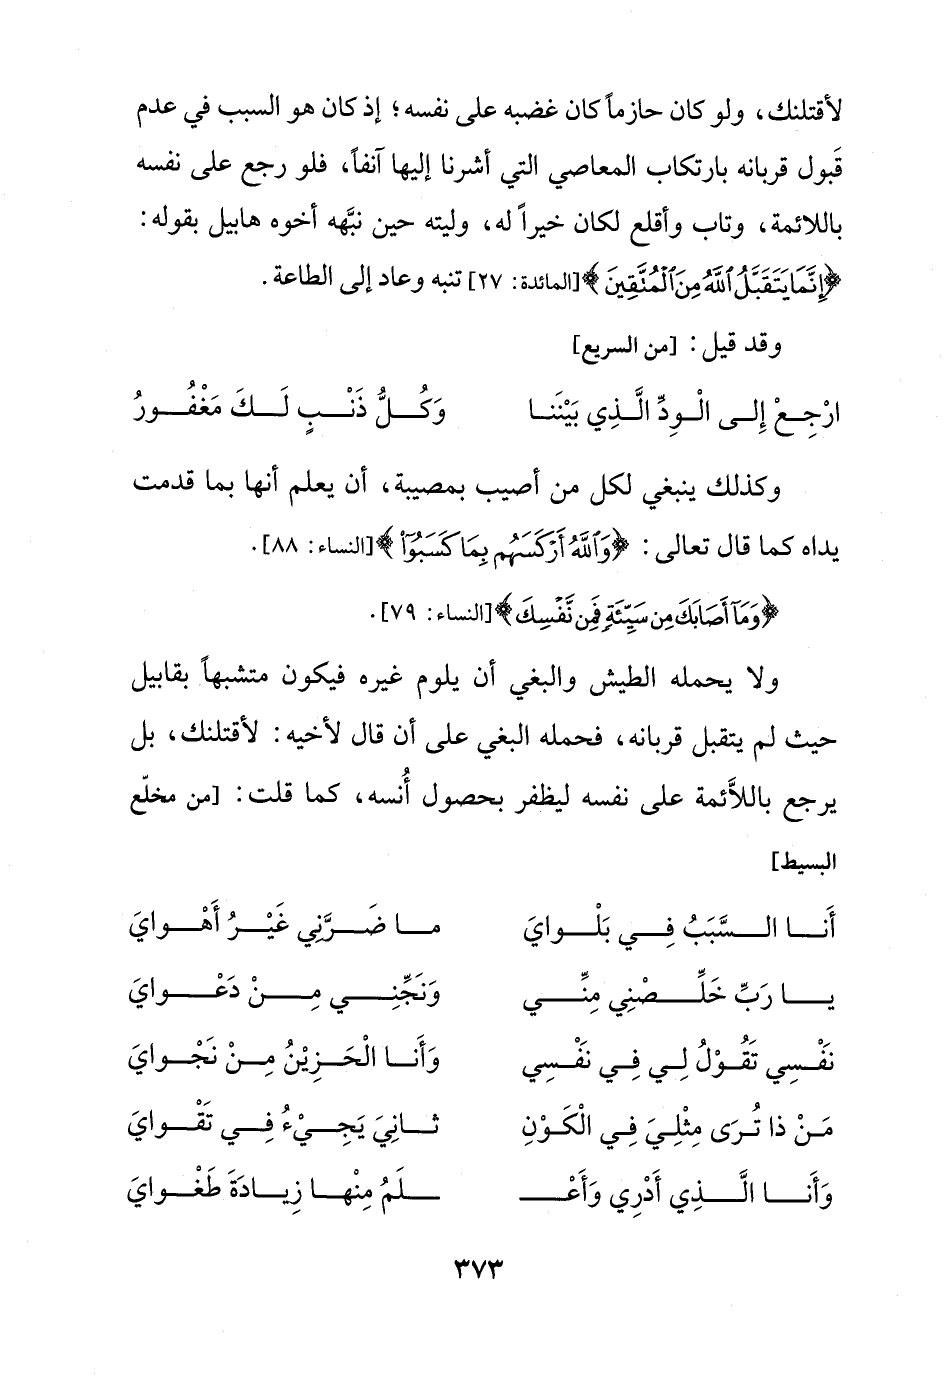 لأقتلنك، ولو كان حازماً كان غضبه على نفسه؛ إذ كان هو السبب في عدم
قَبول قربانه بارتكاب المعاصي التي أشرنا إليها آنفاً، فلو رجع على نفسه
باللائمة، وتاب وأقلع لكان خيراً له، وليته حين نبَّهه أخوه هابيل بقوله:
﴿إِنَّمَا يَتَقَبَّلُ ٱللَّهُ مِنَ ٱلْمُتَّقِينَ﴾ [المائدة: ٢٧] تنبه وعاد إلى الطاعة.
وقد قيل: [من السريع]
ارْجِعْ إِلى الْوِدِّ الَّذِي بَيْنَنا وَكُلُّ ذَنْبٍ لَكَ مَغْفُورُ
وكذلك ينبغي لكل من أصيب بمصيبة، أن يعلم أنها بما قدمت
يداه كما قال تعالى: ﴿وَٱللَّهُ أَرْكَسَهُم بِمَا كَسَبُوٓا۟﴾ [النساء: ٨٨].
﴿وَمَآ أَصَابَكَ مِن سَيِّئَةٍ فَمِن نَّفْسِكَ﴾ [النساء: ٧٩].
ولا يحمله الطيش والبغي أن يلوم غيره فيكون متشبهاً بقابيل
حيث لم يتقبل قربانه، فحمله البغي على أن قال لأخيه: لأقتلنك، بل
يرجع باللاَّئمة على نفسه ليظفر بحصول أُنسه، كما قلت: [من مخلّع
البسيط]
أَنا السَّبَبُ فِي بَلْوايَ ما ضَرَّنِي غَيْرُ أَهْوايَ
يا رَبِّ خَلِّصْنِي مِنِّي وَنَجِّنِي مِنْ دَعْوايَ
نَفْسِي تَقُوْلُ لِي فِي نَفْسِي وَأَنا الْحَزِيْنُ مِنْ نَجْوايَ
مَنْ ذا تُرَى مِثْلِيَ فِي الْكَوْنِ ثانِيَ يَجِيْءُ فِي تَقْوايَ
وَأَنا الَّذِي أَدْرِي وَأَعْـ ـلَمُ مِنْها زِيادَةَ طَغْوايَ
٣٧٣